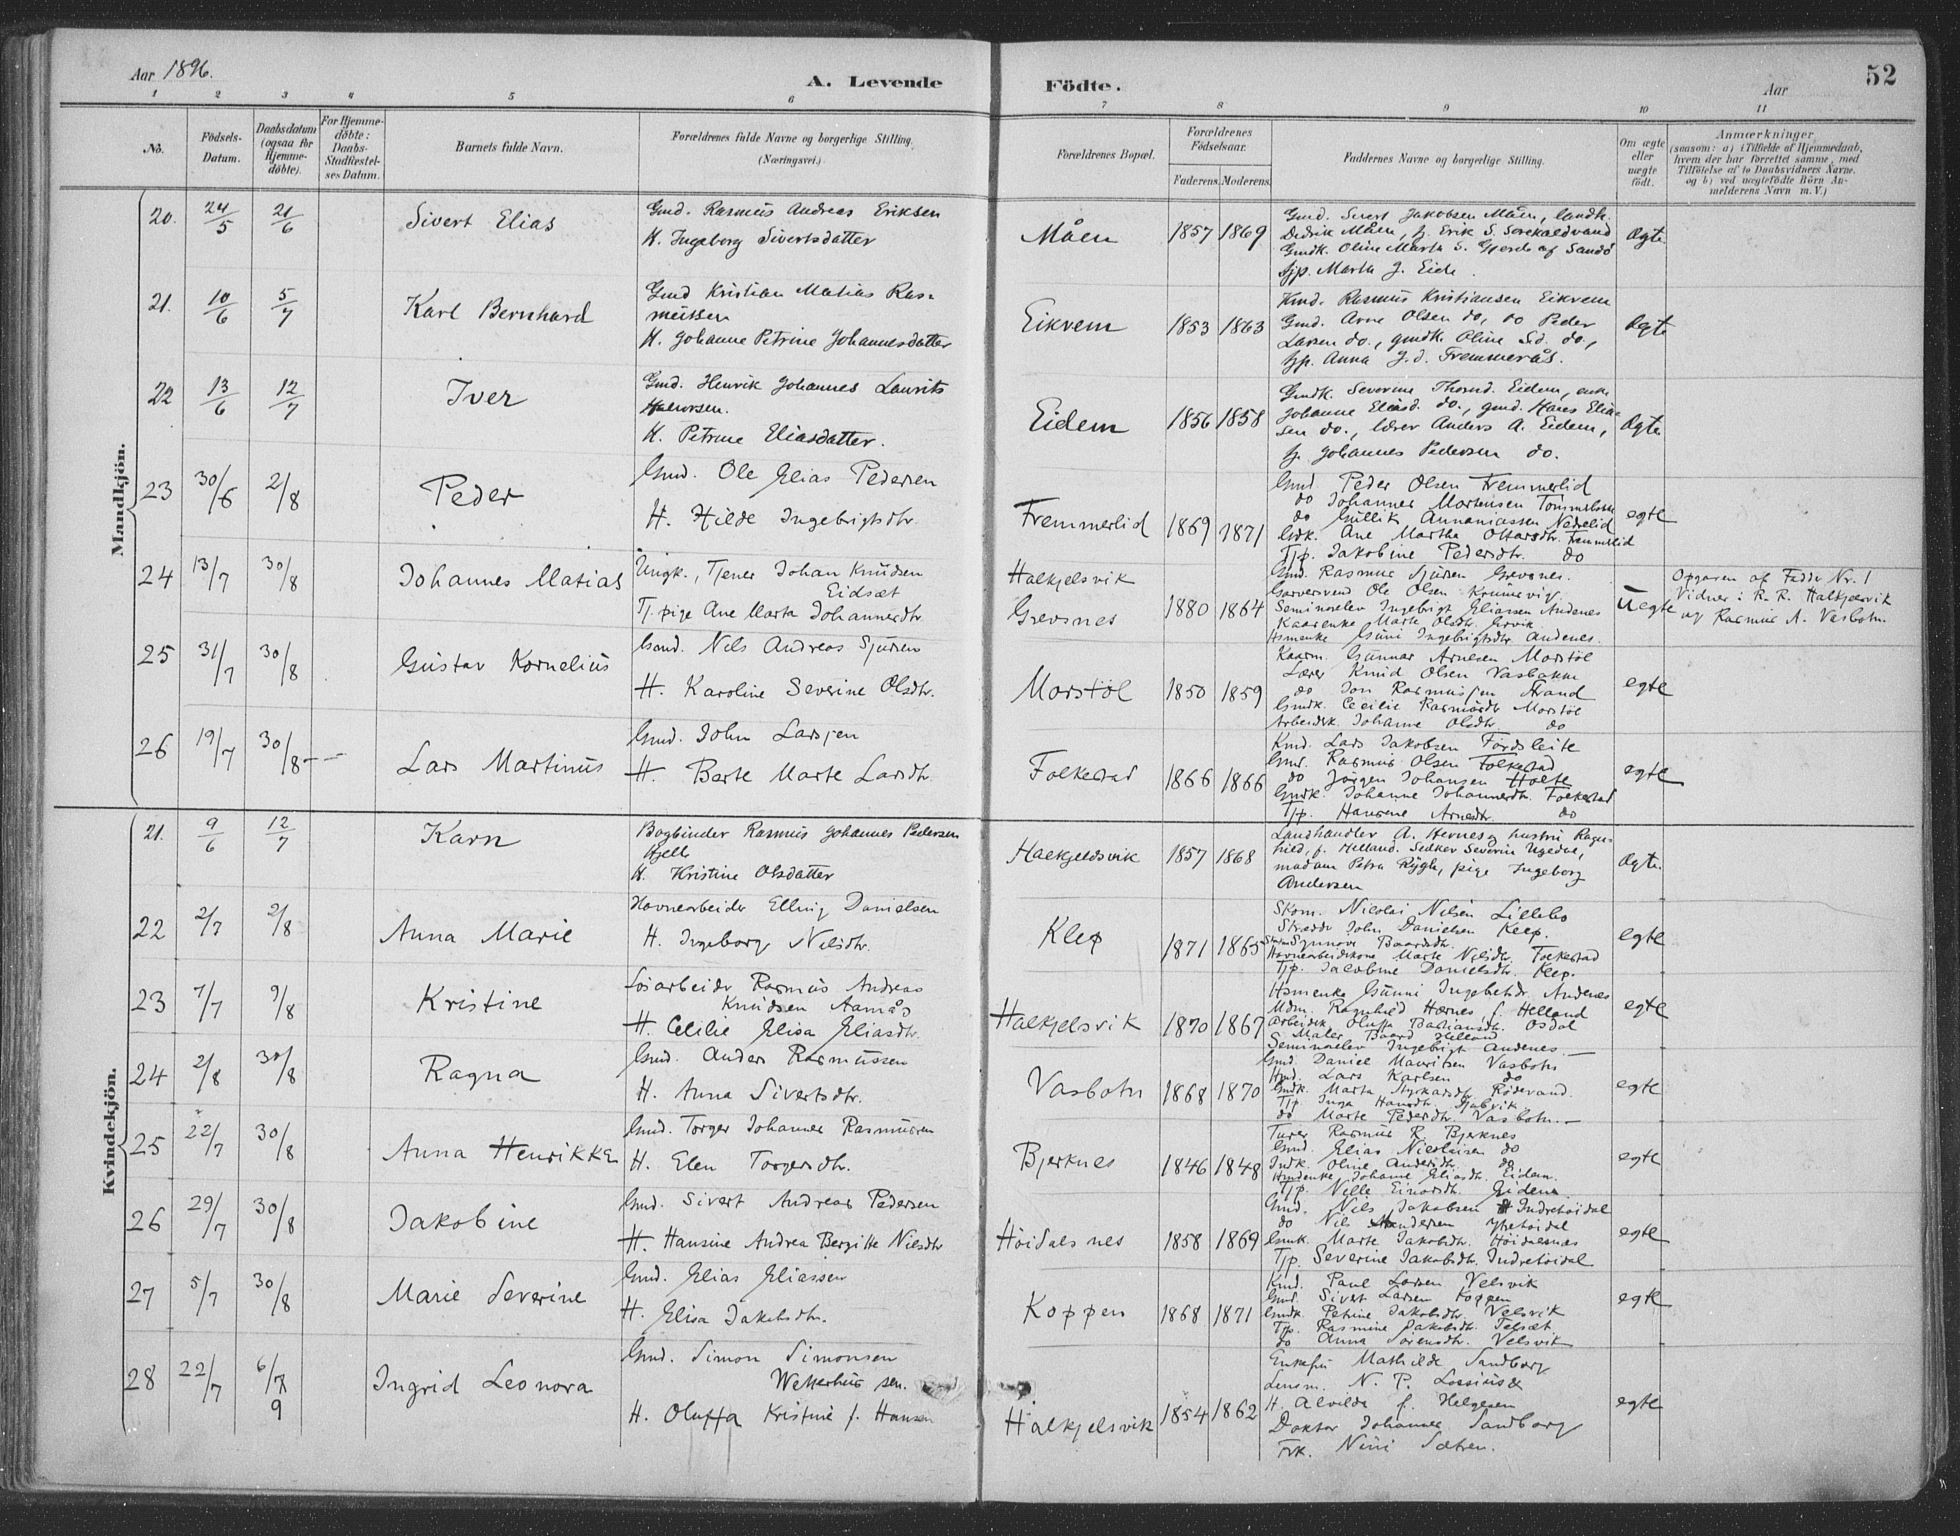 Aar 1896.
A. Levende Födte.
Aar
52
1 2 3 4 5 6 7 8 9 10 11
No.
Födsels-Datum.
Daabsdatum (ogsaa for Hjemme-döbte).
For Hjemme-döbte: Daabs-Stadfæstel-ses Datum.
Barnets fulde Navn.
Forældrenes fulde Navne og borgerlige Stilling. (Næringsvei.)
Forældrenes Bopæl.
Forældrenes Födselsaar.
Faderens. Moderens.
Faddernes Navne og borgerlige Stilling.
Om ægte eller uægte födt.
Anmærkninger
(saasom: a) i Tilfælde af Hjemmedaab, hvem der har forrettet samme, med Tilföielse af to Daabsvidners Navne. og b) ved uægtefödte Börn An-melderens Navn m. V.)
Mandkjön.
20. 24/5 21/6 Sivert Elias
Gmd. Rasmus Andreas Eriksen
H. Ingeborg Sivertsdatter
Måen 1857 1869
Gmd. Sivert Jakobsen Måen, landh.
Didrik Måen, Erik S.
Gmdk. Oline Marta S. Gjerde af Sandö
tjp. Marta J. Eide.
Ægte
21. 10/6 5/7 Karl Bernhard
Gmd Kristian Matias Ras-
mussen
H. Johanne Petrine Johannesdatter
Eikrem 1853 1863
Kmd. Rasmus Kristiansen Eikrem
Gmd. Arne Olsen do, do Peder
Larsen do., gmdk. Oline S.d. do.,
tjp. Anna J.d. Fremmerås.
Ægte
22 13/6 12/7 Iver
Gmd. Henrik Johannes Laurits
Halvorsen.
H. Petrine Eliasdatter.
Eidem 1856 1858
Gmdk. Severine Thorsd. Eidem, enke
Johanne Eliasd. do., gmd. Hans Elia-
sen do., lærer Anders A. Eidem,
Johannes Pedersen do.
Ægte
23 30/6 2/8 Peder
Gmd. Ole Elias Pedersen
H. Hilde Ingebrigtsdtr.
Fremmerlid 1869 1871
Gmd Peder Olsen Fremmerlid
do Johannes Mortensen
do Gullik Annaniassen Nedrelid
Gdk. Ane Martha Olsdtr. Fremmerlid
Tjp. Jakobine Pedersdtr. do
egte
24 13/7 30/8 Johannes Matias
Ungk., Tjener Johan Knudsen
Eidsæt
Tj.pige Ane Marta Johannesdtr
Halkjelsvik
Grevsnes 1880 1864
Gmd. Rasmus Sjursen Grevsnes.
Garversvend Ole Olsen
Seminarelev Ingebrigt Eliassen Andenes
Kaarenke Marte Olsdtr. Ervik
Hsmenke Guni Ingebrigtsdtr Andenes.
Uegte
Opgaven af Fadder Nr. 1
Vidner: R. R. Halkjelsvik
og Rasmus A. Vasbotn.
25 31/7 30/8 Gustav Kornelius
Gmd. Nils Andreas Sjursen
H. Karoline Severine Olsdtr.
Morstöl 1850 1859
Kaarm. Gunnar Arnesen Morstöl
Lærer Knud Olsen Vasbakke
do Jon Rasmussen Strand
Gmdk. Cecilie Rasmusdtr Morstöl
Arbeidsk. Johanne Olsdtr. do
egte
26 19/7 30/8 Lars Martinus
Gmd. John Larsen
H. Berte Marte Larsdtr.
Folkestad 1866 1866
Kmd. Lars Jakobsen Fördsleite
Gmd. Rasmus Olsen Folkestad
do Jörgen Johansen Holte
Gmdk. Johanne Johannesdtr. Folkestad
Tjp. Hansine Arnesdtr. do
egte
Kvindekjön.
21. 9/6 12/7 Karn
Bogbinder Rasmus Johannes Pedersen
Hjelle
H. Kristine Olsdatter
Halkjeldsvik 1857 1868
Landhandler A. Hevnes, hustru Ragn-
hild, f. Helland. Severin Ugedal,
madam Petra Rygh, pige Ingeborg
Andersen
Ægte.
22 2/7 2/8 Anna Marie
Havnearbeider Elling Danielsen
H. Ingeborg Nilsdtr.
Klep 1871 1865
Skom. Nicolai Nilsen Lillebo
Skrædder John Danielsen Klep.
Synnove Baardsdtr.
Havnearbeiderkone Marte Nilsdtr. Folkestad
Tjp. Jakobine Danielsdtr. Klep.
egte
23 7/7 9/8 Kristine
Söarbeider Rasmus Andreas
Knudsen Aamås
H. Cecilie Elisa Eliasdtr.
Halkjelsvik 1870 1867
Hsmenke Gunni Ingebrtsdr. Andenes
Mdm. Ragnhild Hævnes f. Helland
Arbeidsk. Oluffa Bastiansdtr. Osdal
Maler Baard Helland
Seminarelev Ingebrigt Andenes.
egte
24 2/8 30/8 Ragna
Gmd. Anders Rasmussen
H. Anna Sivertsdtr.
Vasbotn 1868 1870
Gmd. Daniel Mauritsen Vasbotn
Hmd. Lars Karlsen do
Gmdk. Marta Styrkarsdtr Rödevand.
Tjp. Inga Hansdtr.
do Marte Pedersdtr. Vasbotn.
egte
25 22/7 30/8 Anna Henrikke
Gmd. Torger Johannes Rasmussen
H. Elen Torgersdtr.
Bjerknes 1846 1848
Rasmus R. Bjerknes
Gmd. Elias Nicolaisen do
Oline Andersdtr. do
Johanne Eliasdtr. Eidem.
Tjp. Nille Einarsdtr. Eidem.
egte
26 29/7 30/8 Jakobine
Gmd. Sivert Andreas Pedersen
H. Hansine Andrea Bergitte Nilsdtr
Höidalsnes 1858 1869
Gmd. Nils Jakobsen Indrehöidal
do Nils Andersen Ytrehöidal
Gmk. Marte Jakobsdtr. Höidalsnes
Tjp. Severine Jakobsdtr. Indrehöidal
egte
27 5/7 30/8 Marie Severine
Gmd. Elias Eliassen
H. Elisa Jakobsdtr.
Koppen 1868 1871
Kmd. Paul Larsen Velsvik
Gmd. Sivert Larsen Koppen
Gmdk. Petrine Jakobsdtr. Velsvik
Tjp. Rasmine Jakobsdtr.
do Anna Sörensdtr. Velsvik
egte
28 22/7 6/9 Ingrid Leonora
Gmd. Simon Simonsen
Wetterhus sen.
H. Oluffa Kristine f. Hansen
Halkjelsvik 1854 1862
Enkefru Mathilde Sandborg
Lensm. N. P. Lossius &
H. Alvilde f. Helgesen
Doktor Johannes Sandborg
Frk. Nini Sætren.
egte